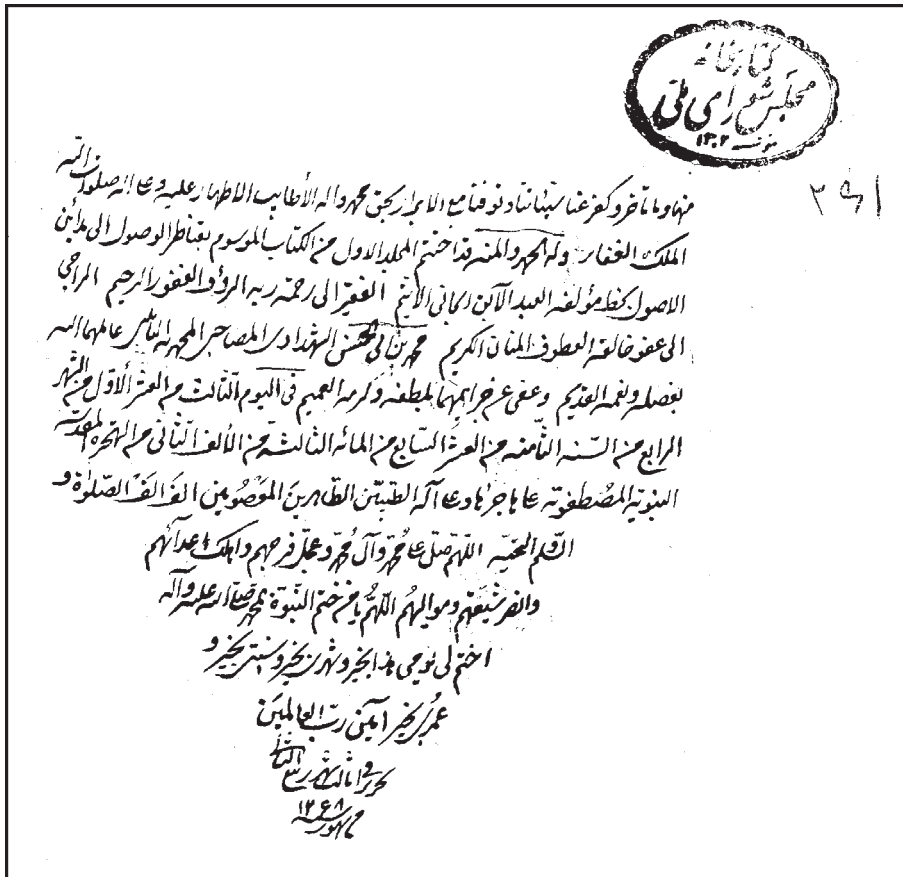 كتابخانه
مجلس شورای ملی
مؤسسه ۱۳۰۲
۲۹۱
منها وما تأخر وكفر عنا سيئاتنا وتوفنا مع الابرار بحق محمد وآله الأطايب الاطهار عليه وعلى آله صلوات الله
الملك الغفار وله الحمد والمنه قد اختتم المجلد الاول من الكتاب الموسوم بقناطر الوصول الى مدائن
الاصول بخط مؤلفه العبد الآبق الجاني الأثيم الفقير الى رحمة ربه الرؤف الغفور الرحيم الراجي
الى عفو خالقه العطوف المنان الكريم محمد بن ابي الحسن المصاحبي عاملهما الله
بفضله ولطفه القديم وعفى عن جرايمهما بلطفه وكرمه العميم في اليوم الثالث من العشر الأول من الشهر
الرابع من السنه الثامنه من العشر السابع من المائه الثالثه من الألف الثاني من الهجره المقدسه
النبويه المصطفويه على هاجرها وعلى آله الطيبين الطاهرين المعصومين الف الف الصلوة و
التحيه اللهم صل على محمد وآل محمد وعجل فرجهم واهلك اعدائهم
وانصر شيعتهم ومواليهم اللهم يا من ختم النبوة بمحمد صلى الله عليه وآله
اختم لي يومي هذا بخير وشهري بخير وسنتي بخير و
عمري بخير آمين رب العالمين
تحريرا في ثالث شهر ربيع الثاني
۱۲۶۸